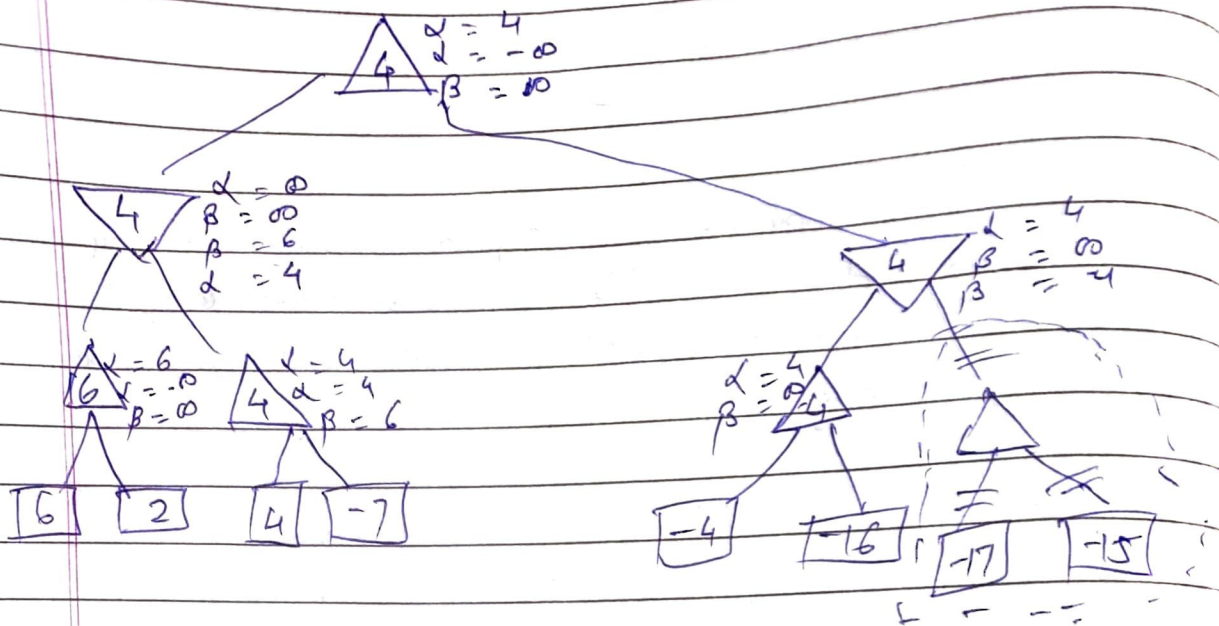 α = 4
α = -∞
4
β = ∞
α = ∞
β = ∞
β = 6
α = 4
4
α = 4
β = ∞
β = -4
4
α = 6
α = -∞
β = ∞
6
α = 4
α = 4
β = 6
4
α = 4
β = ∞
-4
6
2
4
-7
-4
-16
-17
-15